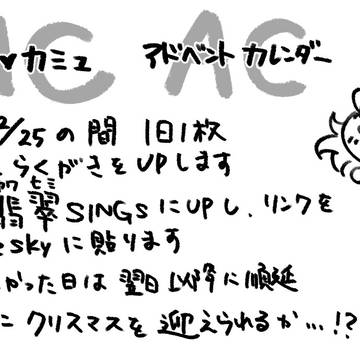 AC AC
♥カミュ アドベントカレンダー
2/25の間 1日1枚
らくがきをUPします
翡翠SINGSにUPし、リンクを
skyに貼ります
かった日は翌日以降に順延
に クリスマスを迎えられるか…!?